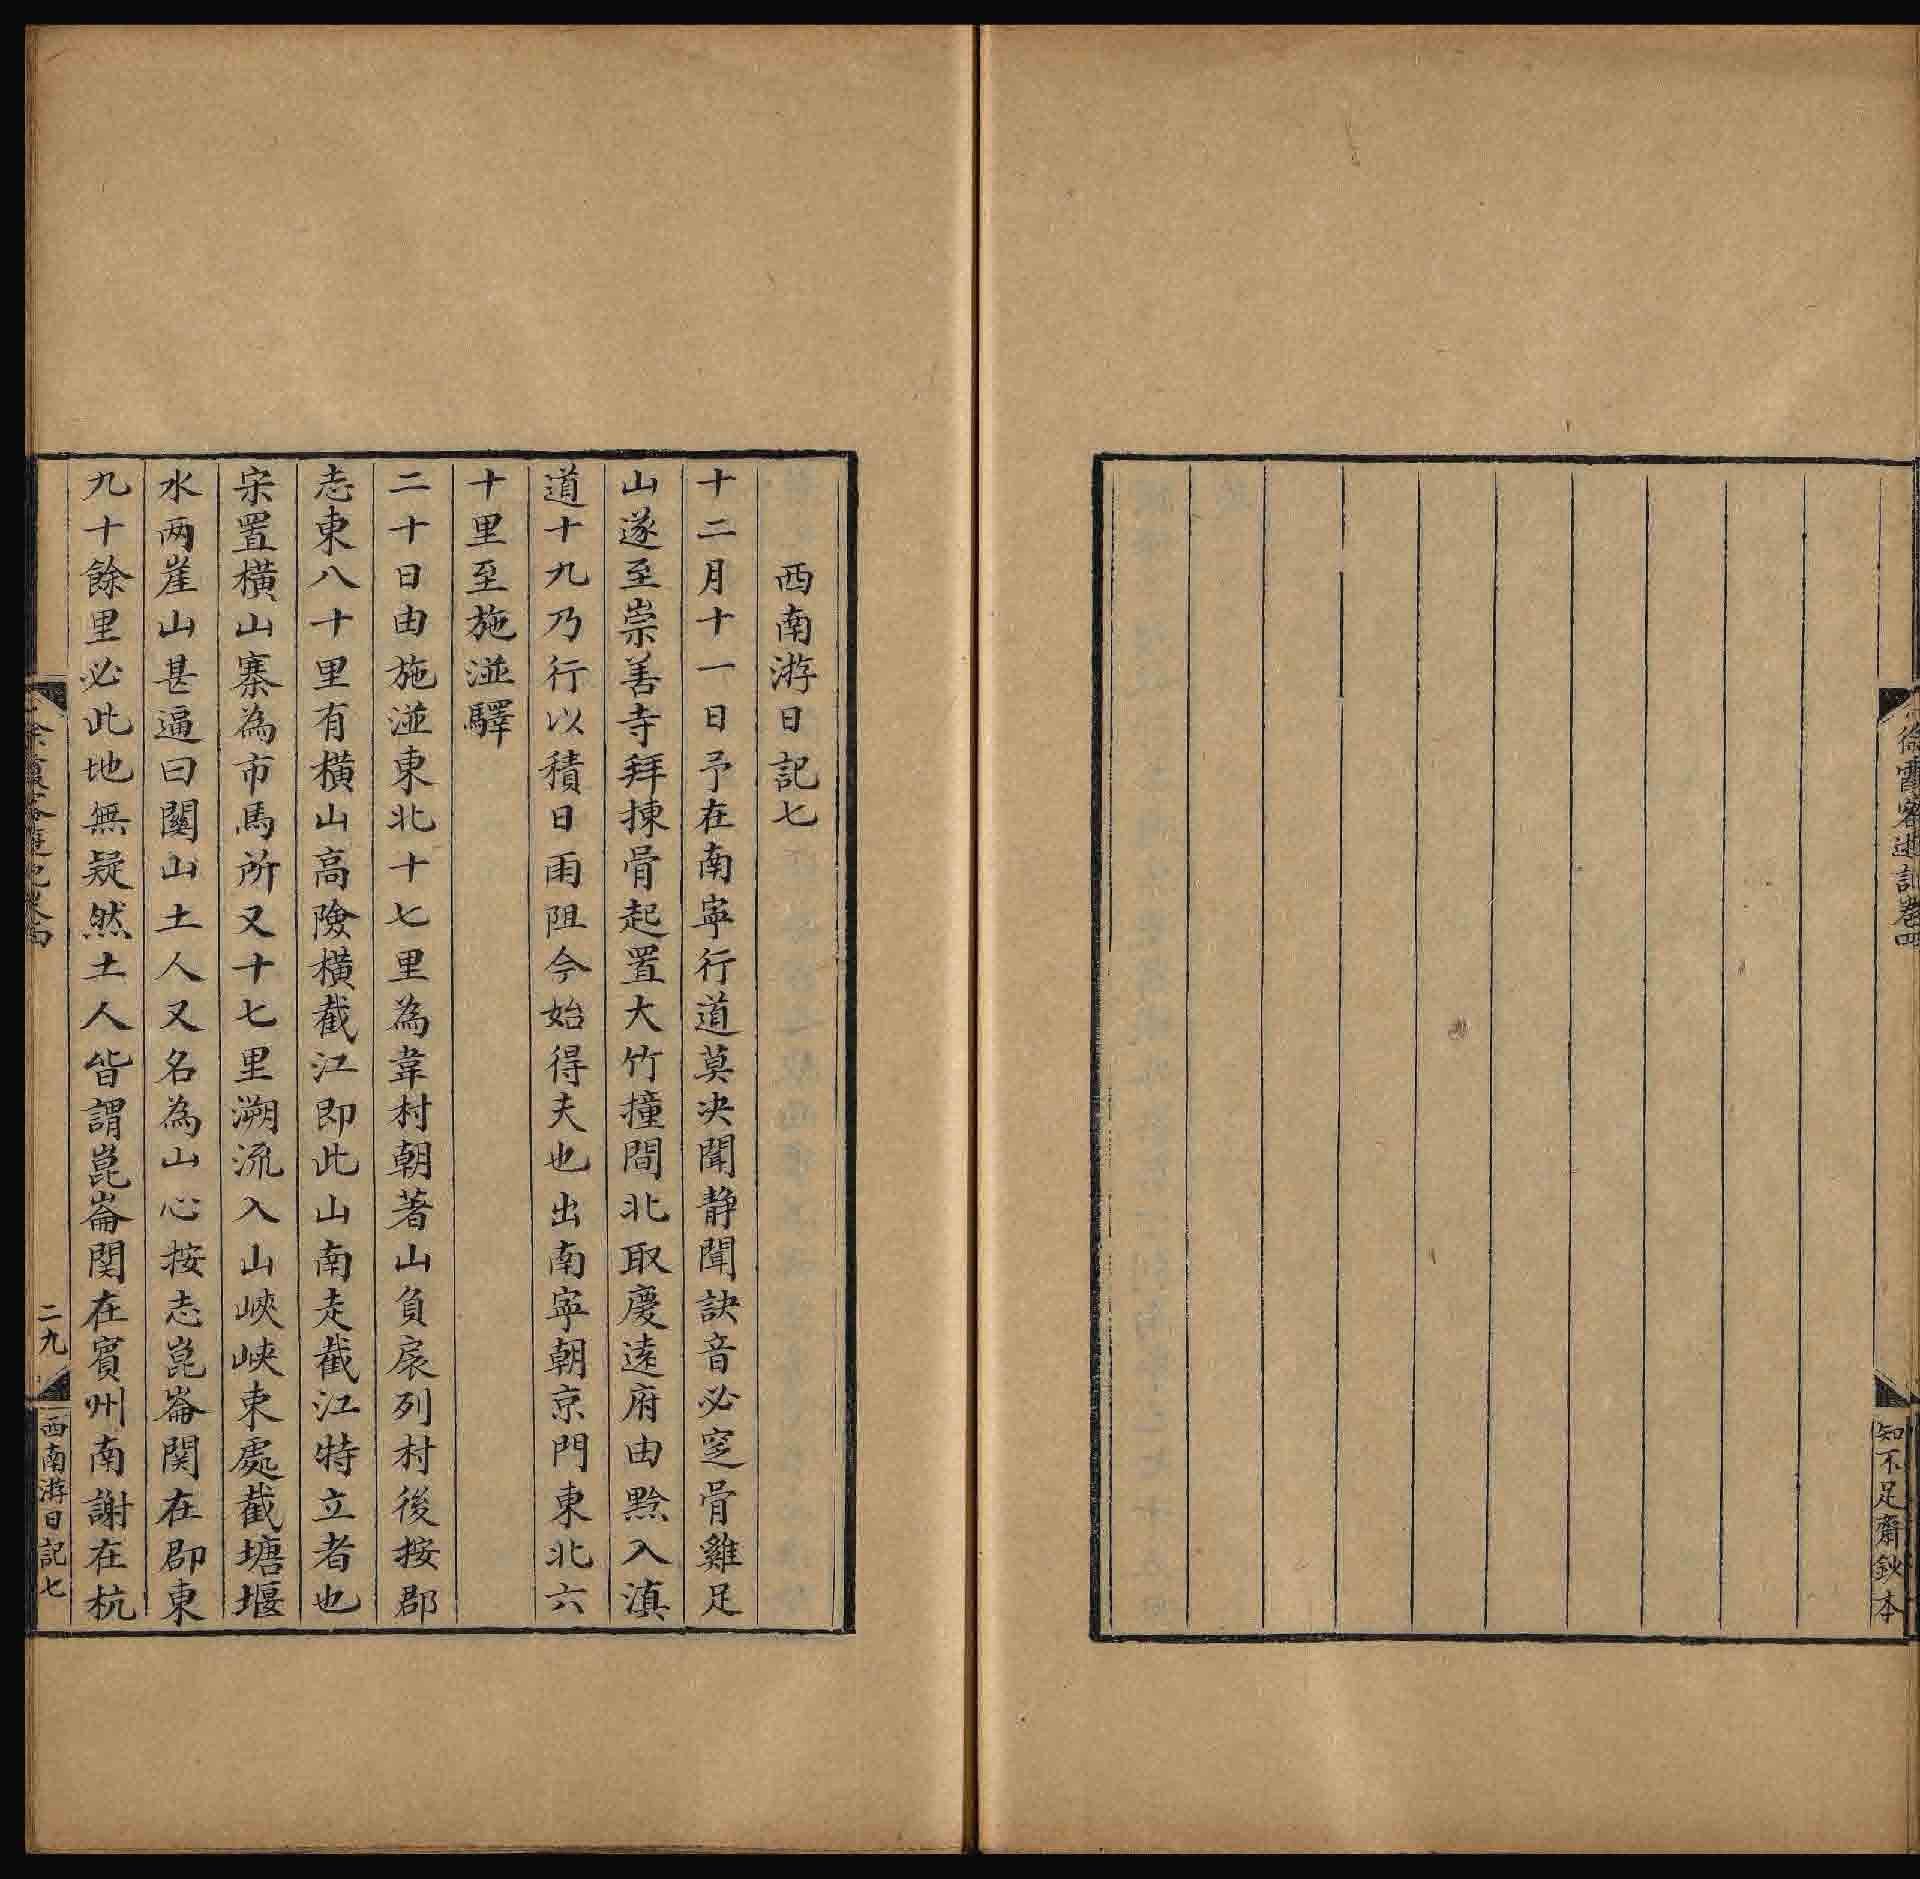 徐霞客遊記卷四
知不足齋鈔本
西南游日記七
十二月十一日予在南寧行道莫决聞静聞訣音必窆骨雞足
山遂至崇善寺拜揀骨起置大竹撞間北取慶遠府由黔入滇
道十九乃行以積日雨阻今始得夫也出南寧朝京門東北六
十里至施湴驛
二十日由施湴東北十七里為韋村朝著山負扆列村後按郡
志東八十里有横山高險横截江即此山南走截江特立者也
宋置横山寨為市馬所又十七里溯流入山峽峽東處截塘堰
水两崖山甚逼曰關山土人又名為山心按志崑崙関在郡東
九十餘里必此地無疑然土人皆謂崑崙関在賓州南謝在杭
徐霞客遊記卷四
二九
西南游日記七